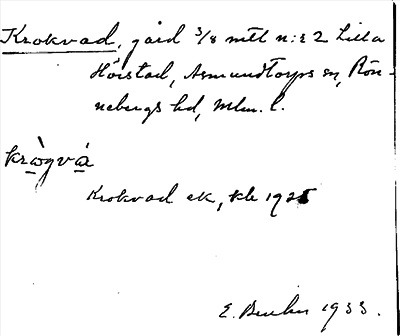 Krokvad, gård 3/8 mtl n:r 2 Lilla
Härstad, Asmundtorps sn, Rön-
nebergs hd, Mlm. l.
kràgvá
Krokvad ek, kb 1925
E. 1933.